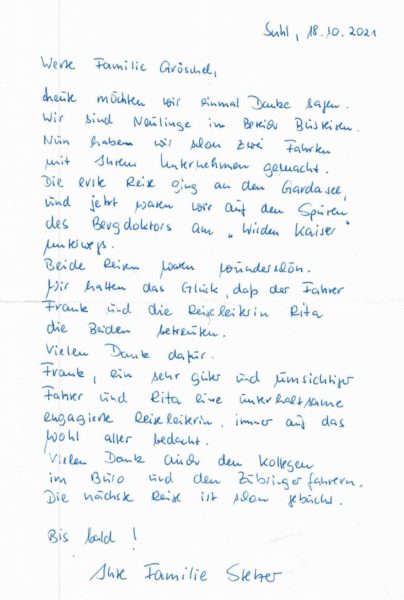 Suhl, 18.10.2021
Werte Familie Gröschel,
heute möchten wir einmal Danke sagen.
Wir sind Neulinge im Bereich Busreisen.
Nun haben wir schon zwei Fahrten
mit Ihrem Unternehmen gemacht.
Die erste Reise ging an den Gardasee,
und jetzt waren wir auf den Spuren
des Bergdoktors am „Wilden Kaiser"
unterwegs.
Beide Reisen waren wunderschön.
Wir hatten das Glück, daß der Fahrer
Frank und die Reiseleiterin Rita
die Beiden betreuten.
Vielen Dank dafür.
Frank, ein sehr guter und umsichtiger
Fahrer und Rita eine unterhaltsame
engagierte Reiseleiterin, immer auf das
Wohl aller bedacht.
Vielen Dank auch den Kollegen
im Büro und den Zubringerfahrern.
Die nächste Reise ist schon gebucht.
Bis bald!
Ihre Familie Stelzer